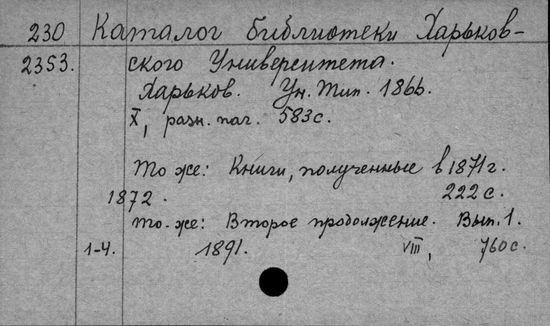 230 Каталог библиотеки Харьков-
2353. ского Университета.
Харьков. Ун. Тип. 1866.
X, разн. паг. 583 с.
То же: Книги, полученные в 1871 г.
1872. 222 с.
То-же: Второе продолжение. Вып. 1.
1-4. 1891. VIII, 760 с.